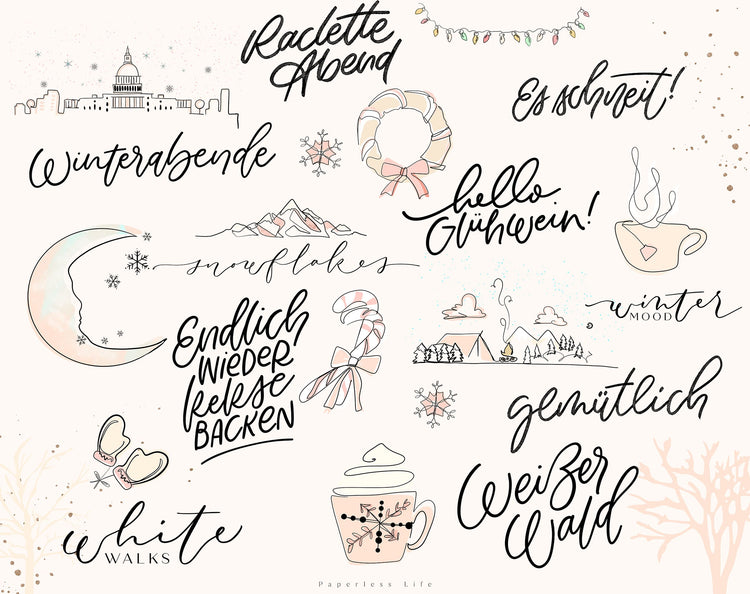 Raclette
Abend
Es schneit!
Winterabende
hello
Glühwein!
snowflakes
winter
MOOD
Endlich
WIEDER
kekse
BACKEN
gemütlich
Weißer
Wald
white
WALKS
Paperless Life